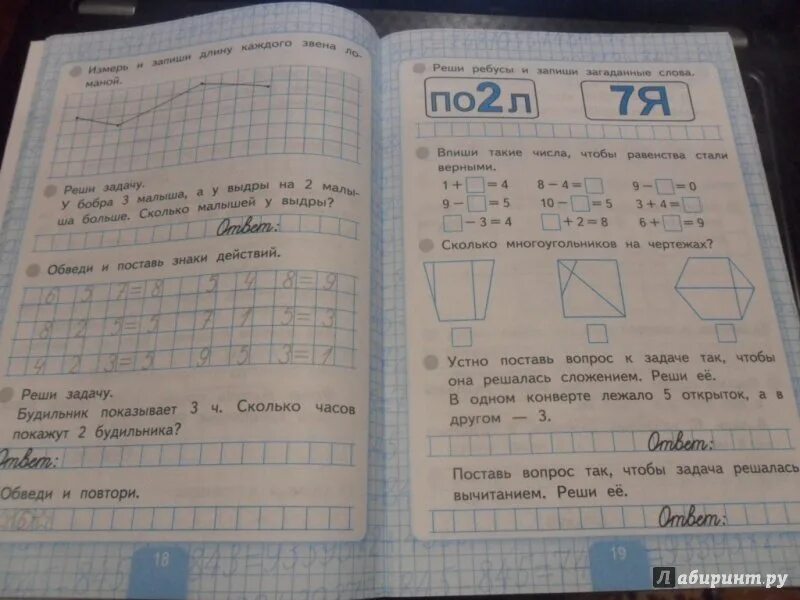 Измерь и запиши длину каждого звена ло-
маной.
Реши задачу.
У бобра 3 малыша, а у выдры на 2 малы-
ша больше. Сколько малышей у выдры?
Ответ:
Обведи и поставь знаки действий.
6 5 7=8 5 4 8=9
8 2 5=5 7 1 5=3
4 2 3=3 9 5 3=1
Реши задачу.
Будильник показывает 3 ч. Сколько часов
покажут 2 будильника?
Ответ:
Обведи и повтори.
18
Реши ребусы и запиши загаданные слова.
по2л 7Я
Впиши такие числа, чтобы равенства стали
верными.
1 + □ = 4 8 – 4 = □ 9 – □ = 0
9 – □ = 5 10 – □ = 5 3 + 4 = □
□ – 3 = 4 □ + 2 = 8 6 + □ = 9
Сколько многоугольников на чертежах?
Устно поставь вопрос к задаче так, чтобы
она решалась сложением. Реши её.
В одном конверте лежало 5 открыток, а в
другом — 3.
Ответ:
Поставь вопрос так, чтобы задача решалась
вычитанием. Реши её.
Ответ:
19
Лабиринт.ру